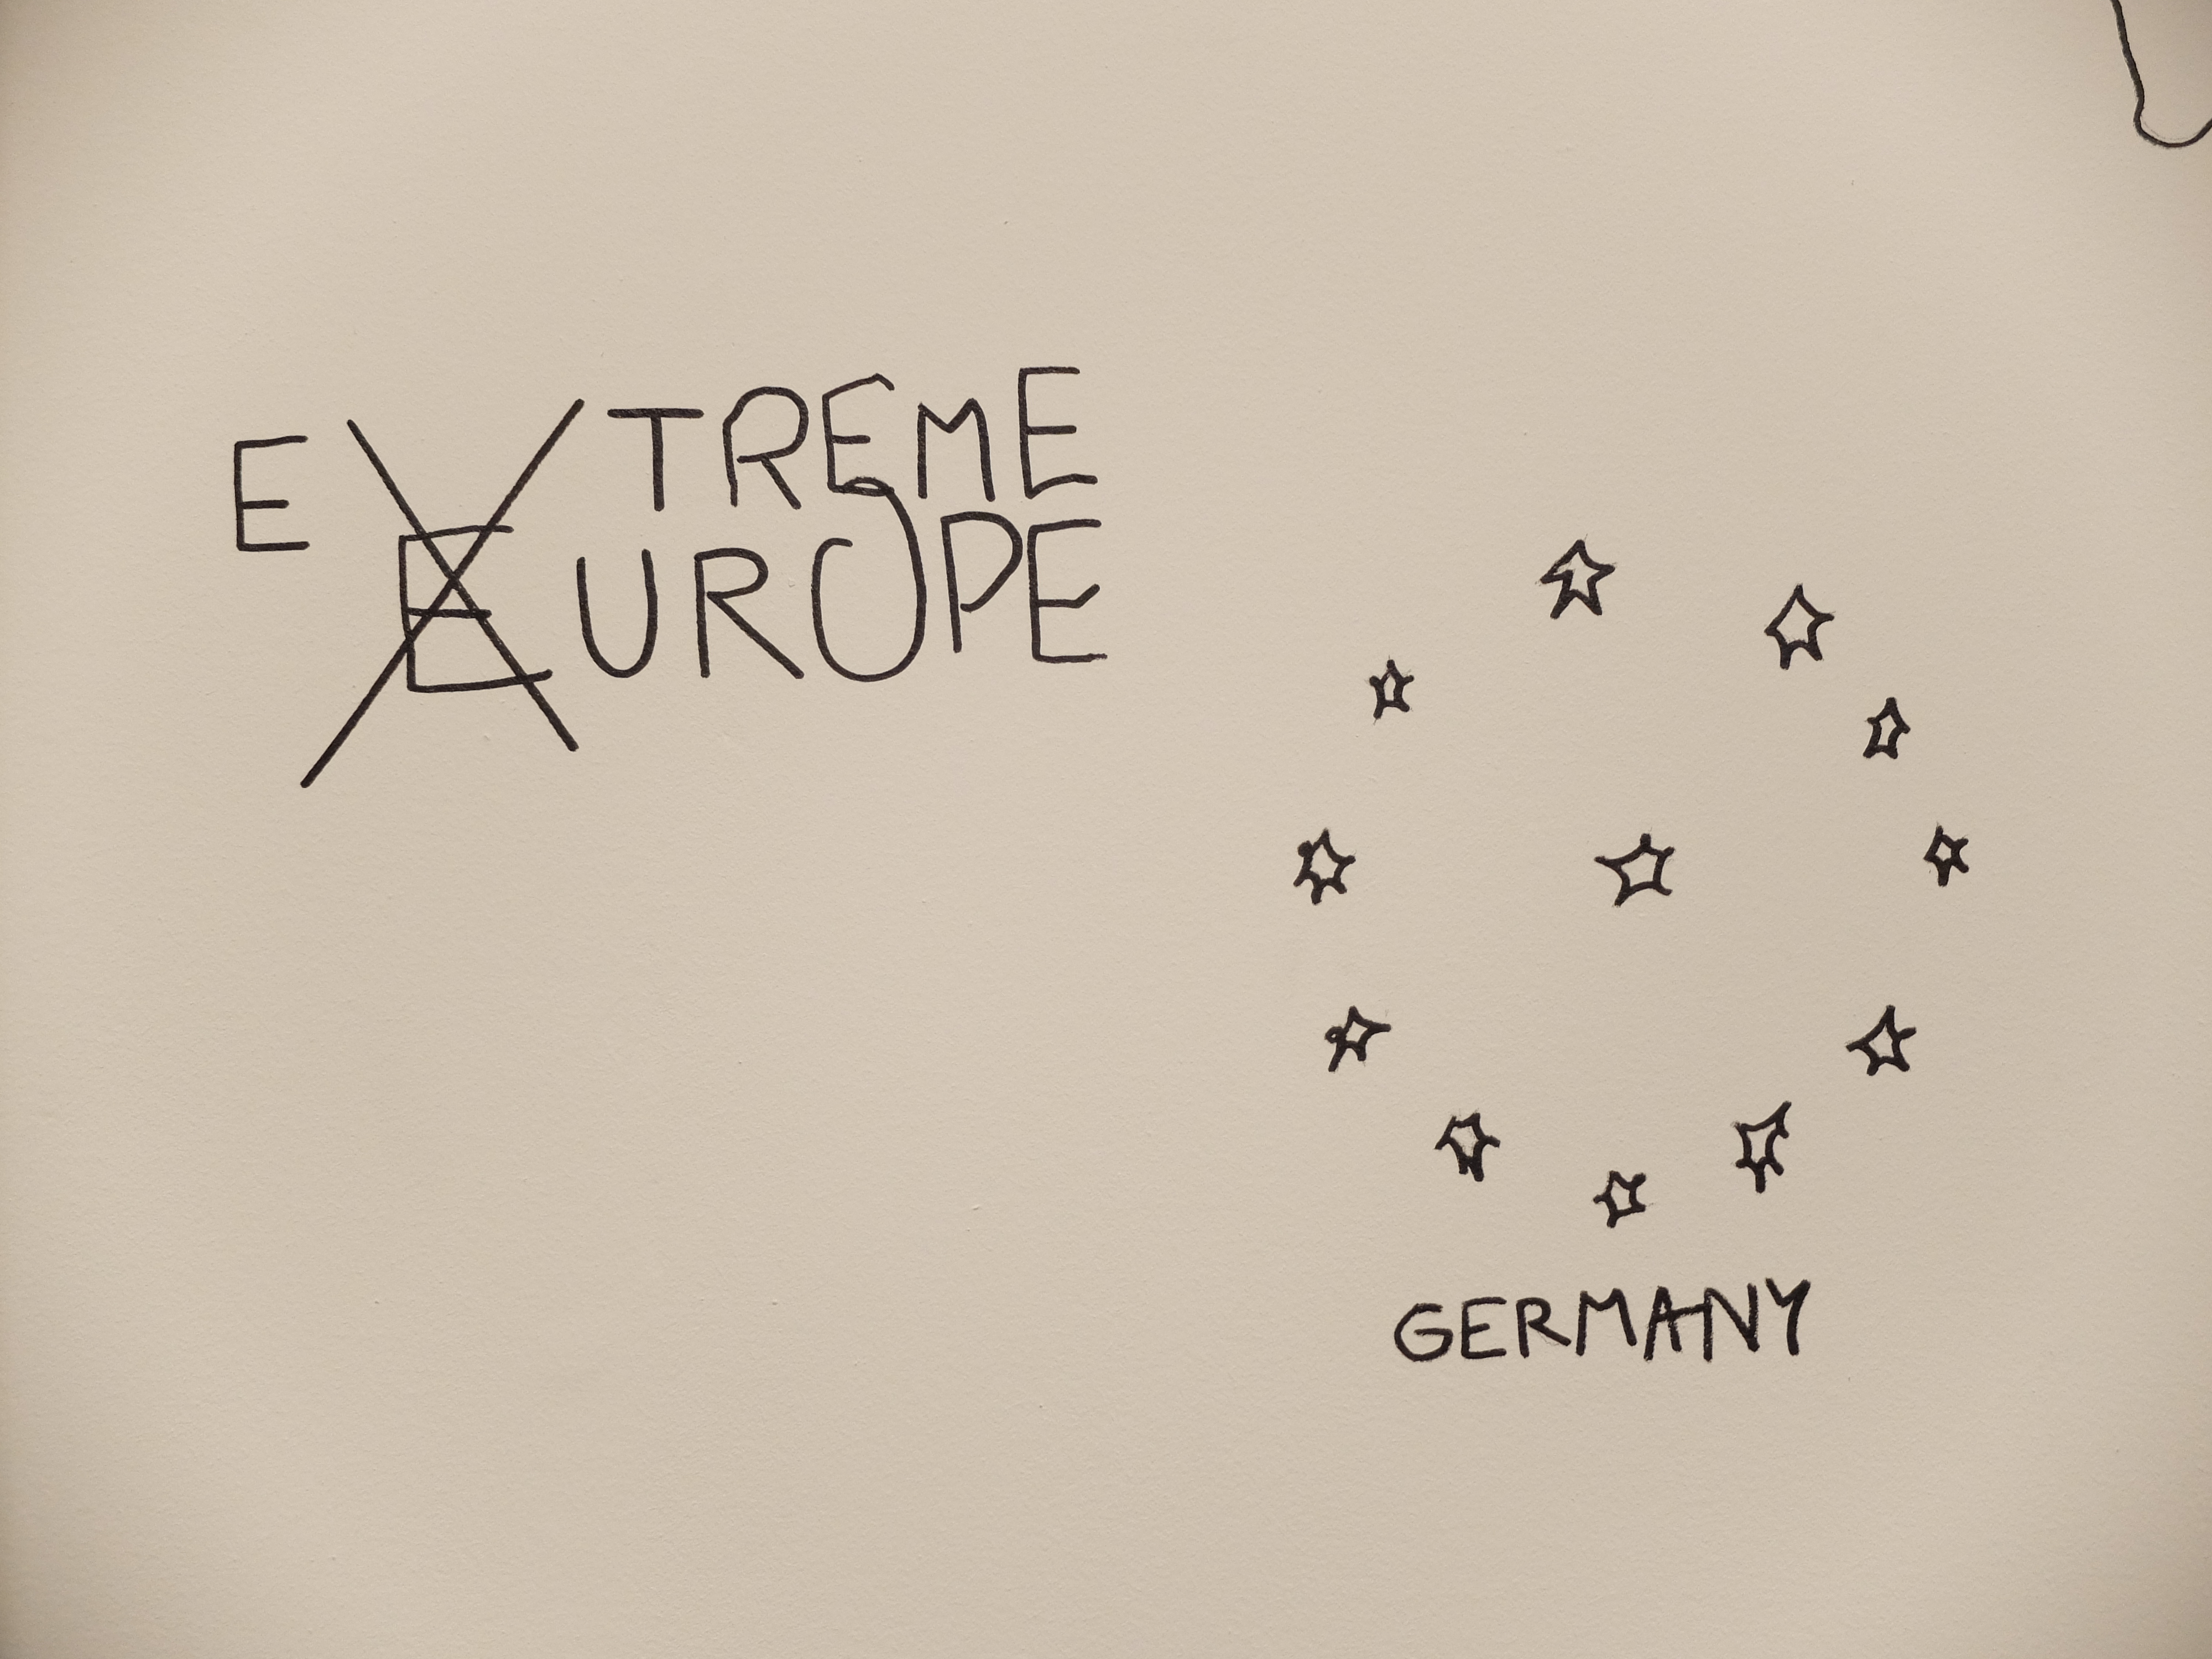 EXTREME
EUROPE
GERMANY